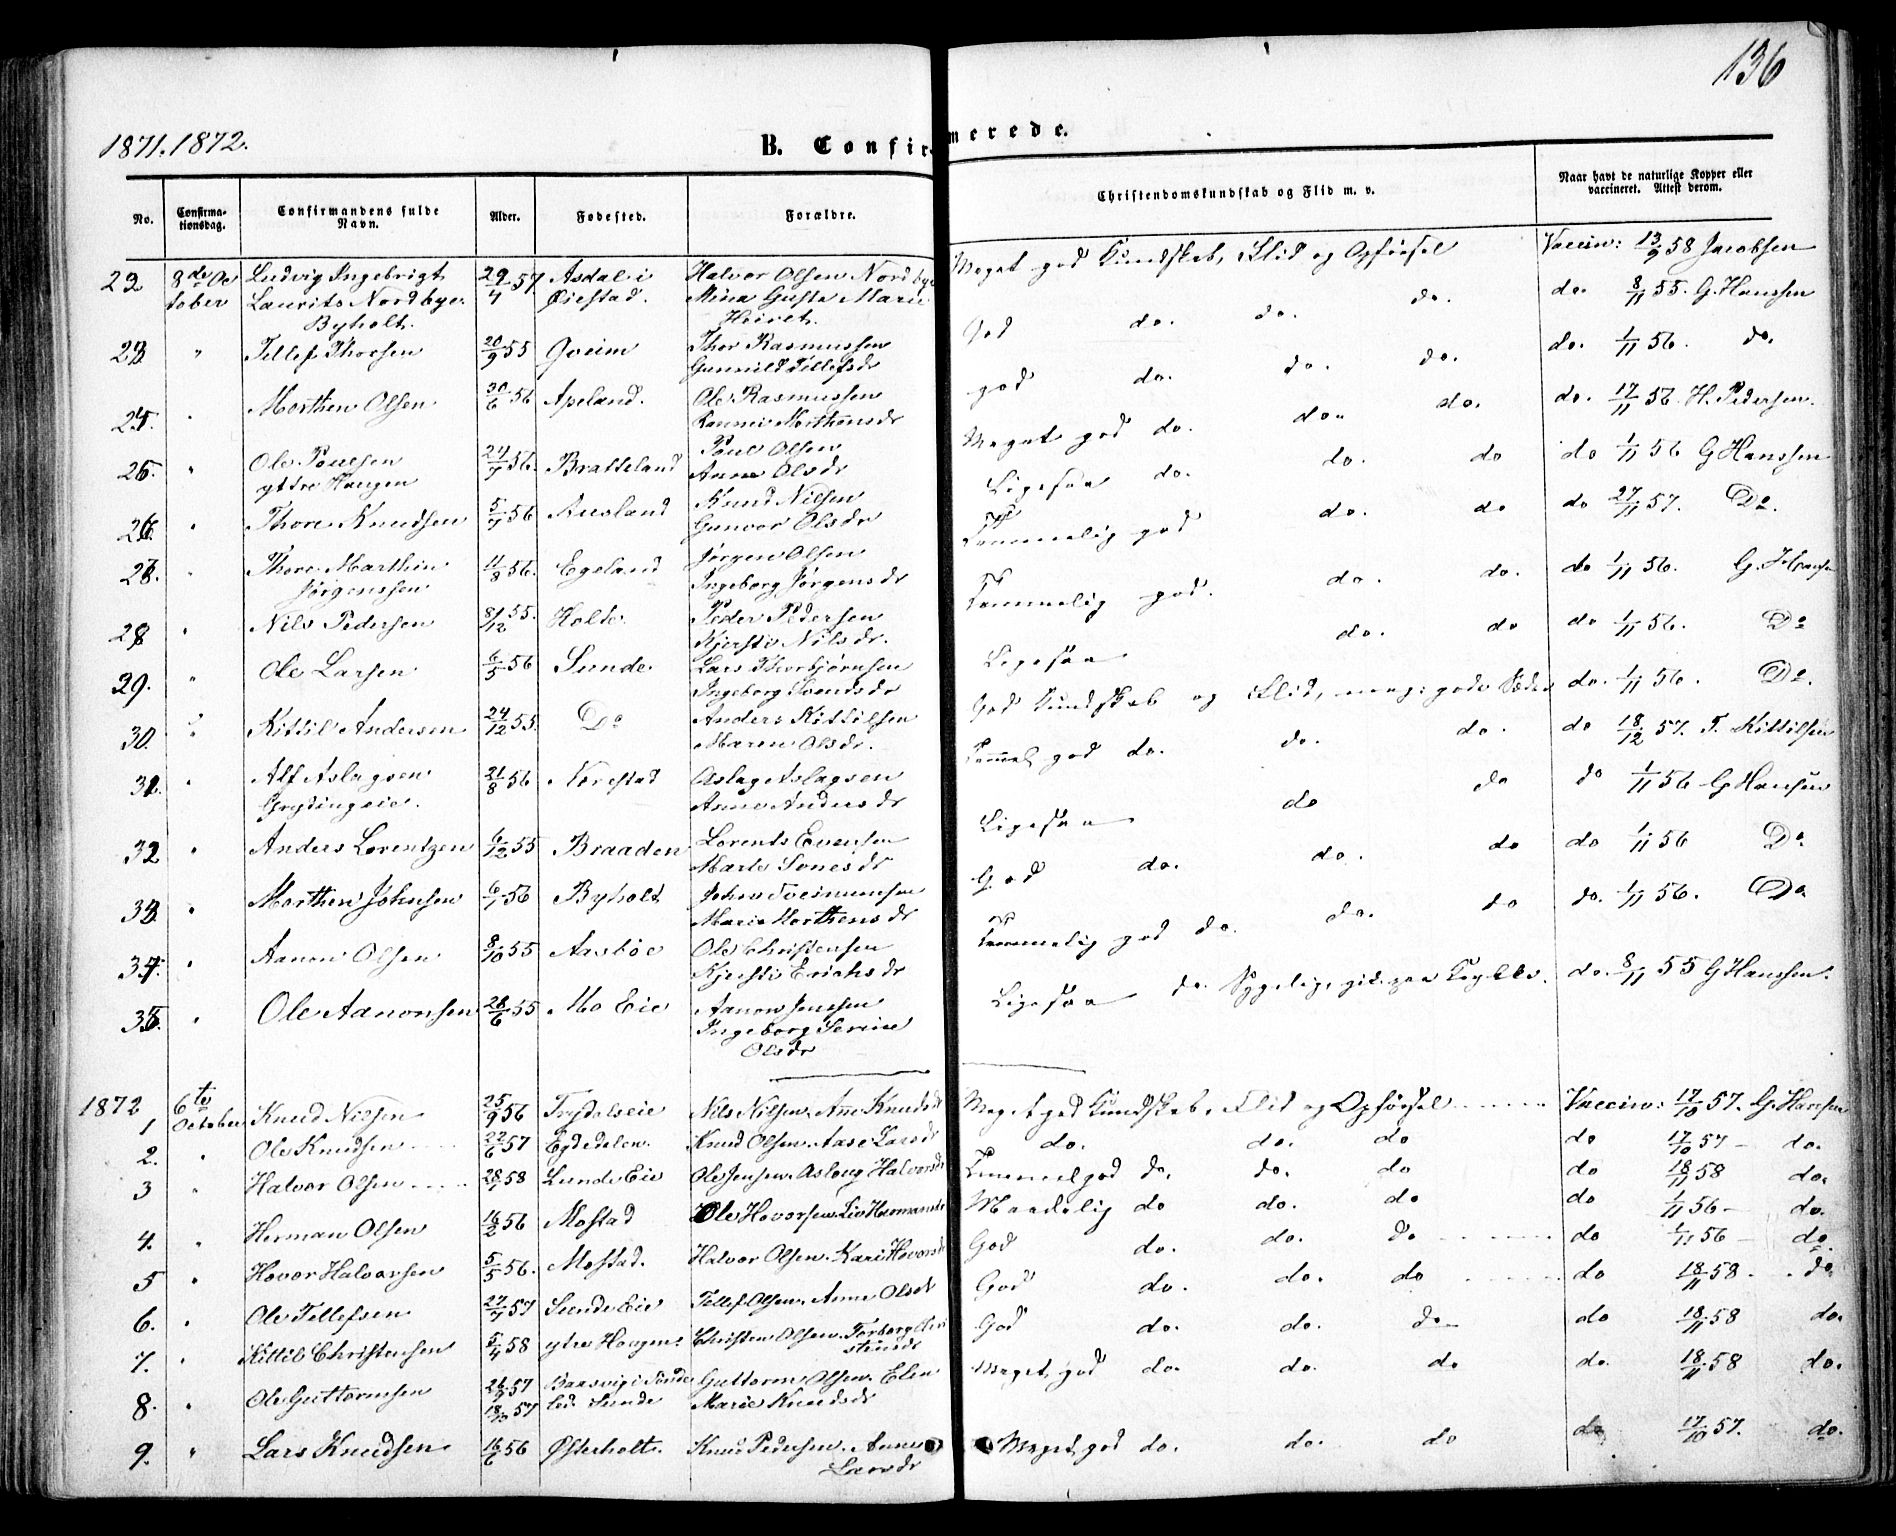 136
1871. 1872.
B. Confirmerede.
No.
Confirma-
tionsdag.
Confirmandens fulde
Navn.
Alder.
Fødested.
Forældre.
Christendomskundskab og Flid m. v.
Naar havt de naturlige Kopper eller
vaccineret. Attest derom.
22 8de Oc Ludvig Ingebrigt 29/4 57 Asdal i Halvor Olsen Nordbye Meget god Kundskab, Flid og Opførsel Vaccin: 13/9 58 Jacobsen
tober Laurits Nordbye Øiestad. Mina Gusta Marie
Byholt.
23 " Tellef Thorsen 20/9 55 Qveim Thor Rasmussen God do. do. do. do. 8/11 55. G. Hanssen
Gunnild Tellefsdr
24. " Morthen Olsen 30/6 56 Apeland. Ole Rasmussen god do. do. do. do. 1/11 56. do.
Morthensdr
25. " Ole Poulsen 56. Bratteland Poul Olsen Meget god do. do. do. do. 17/11 56 H. Pedersen.
ytdre Haugen Anne Olsdr
26. " Thore Knudsen 5/7 56 Ausland Knud Nilsen Ligesaa do. do. do do 1/11 56 G Hanssen
Gunvor Olsdr
27. " Thore Marthin 11/8 56. Egeland Jørgen Olsen Temmelig god do. do do 27/11 57. Do.
Jørgenssen Ingeborg Jørgensdr
28 " Nils Pedersen 31/12 55. Holte Peder Pedersen Temmelig god. do. do. do 1/11 56. G. Hansen
Kjersti Nilsdr.
29. " Ole Larsen 6/5 56 Sunde Lars Thorbjørnsen Ligesaa do. do do 1/11 56. Do
Ingeborg Svendsdr
30. " Kittil Andersen 24/12 55. Do Anders Kittilsen God Kundskab og Flid, meg: gode Sæder do. 1/11 56. Do.
Maren Olsdr.
31. " Alf Aslagsen 21/8 56 Nærestad Aslag Aslagsen Temmel god do. do. do. do 18/12 57. T. Kittilsen
Anne Andersdr
32 " Anders Lorentzen 6/12 55 Braaden Lorents Evensen Ligesaa do do do 1/11 56 G Hansen
Marte Tonesdr
33. " Morthen Johnsen 6/1 56 Byholt John God do. do. do do 1/11 56 Do
Maria Morthensdr
34. " Aanon Olsen 8/10 55 Aasbøe Ole Christensen Temmelig god do. do. do do. 1/11 56. Do
Kjersti Erichsdr
35. " Ole Aanonsen 28/6 55 Mo Eie Aanon Jensen Ligesaa do. Sygelig, do. 8/11 55 G Hanssen.
Ingeborg Serine
Olsdr
1872 6te
1 October Knud Nilsen 25/9 56 Trydalseie Nils Nilsen, Ane Knudsdr Meget god Kundskab, Flid og Opførsel Vaccin: 17/10 57. G. Hanssen
2. " Ole Knudsen 22/6 57 Egdedalen. Knud Olsen. Aase Larsdr do. do. do do 17/10 57 – do.
3 " Halvor Olsen 28/1 58 Lunde Eie Ole Jensen. Aslaug Halvorsdr Temmel god do. do. do do 18/11 58 do.
4. " Herman Olsen 16/2 56 Mostad Ole Hovorsen. Liv Hermansdr Maadelig do do. do do 1/11 56 – do.
5 " Hovor Halvorsen 5/5 56. Mostad. Halvor Olsen. Kari Hovorsdr God do. do. do do 1/11 56 – do.
6. " Ole Tellefsen 27/7 57 Sunde Eie Tellef Olsen. Anne Olsdr God do. do. do do 18/11 58. do
7. " Kittil Christensen 5/4 58 ytre Haugen. Christen Olsen. Torborg Chri God do. do. do do 18/11 58 do.
stensdr
8. " Ole Guttormsen 26/9 57 Baasvig i Sønde Guttorm Olsen. Elen Meget god do. do. do do. 18/11 58 do.
57 led. Sunde Marie Knudsdr
9. " Lars Knudsen 16/6 56 Østerholt. Knud Pedersen. Anne Meget god do. do. do do 17/10 57. do.
Larsdr